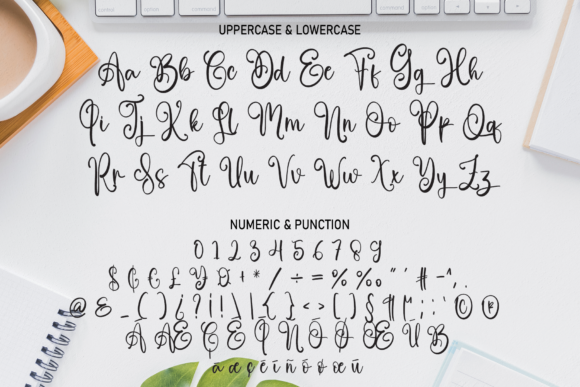 UPPERCASE & LOWERCASE
Aa Bb Cc Dd Ee Ff Gg Hh
Ii Jj Kk Ll Mm Nn Oo Pp Qq
Rr Ss Tt Uu Vv Ww Xx Yy Zz
NUMERIC & PUNCTION
0 1 2 3 4 5 6 7 8 9
$ ₵ € £ ¥ ¤ + * / ÷ = % ‰ " ' # - ^ , .
@ & _ ( ) ¿ ? ¡ ! \ | { } < > [ ] § ¶ ; : © ®